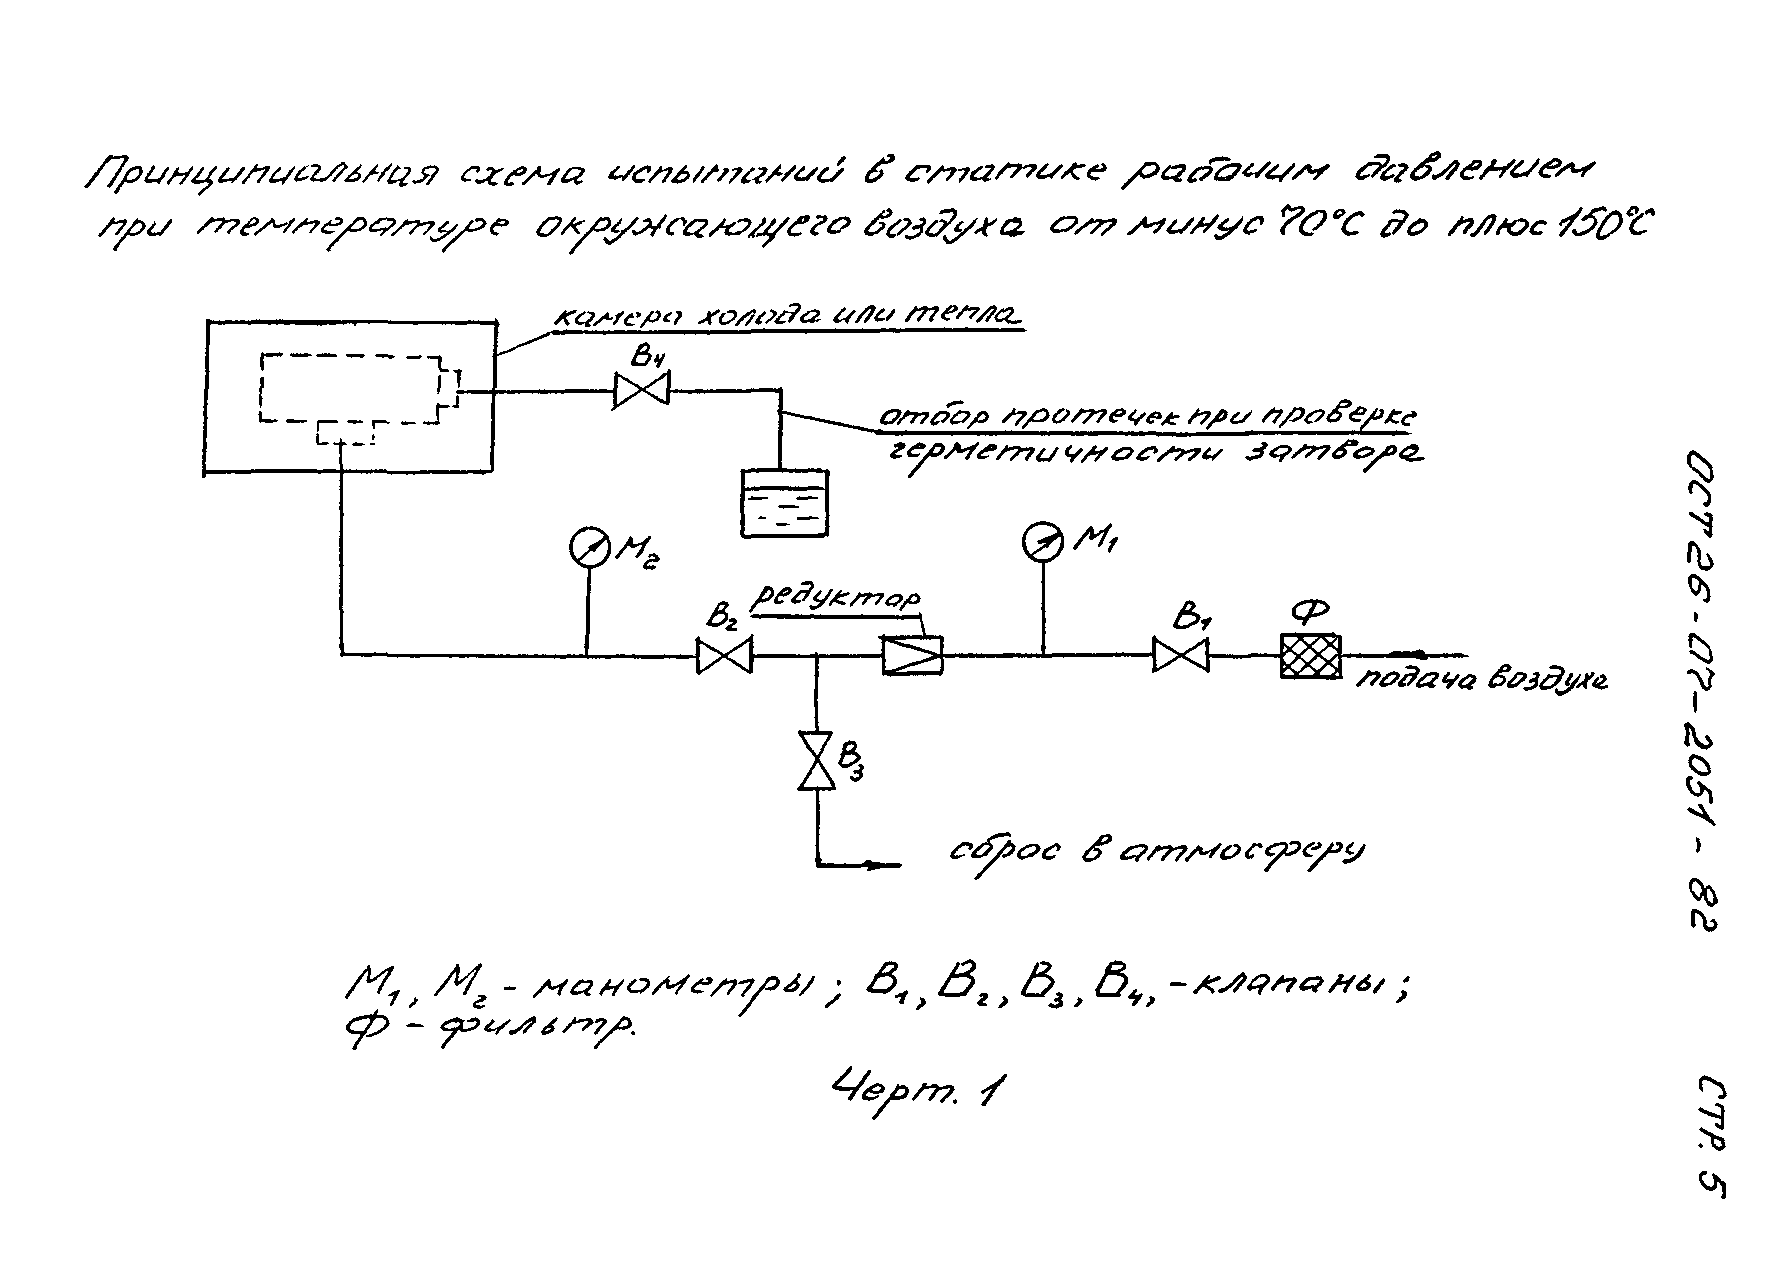 Принципиальная схема испытаний в статике рабочим давлением
при температуре окружающего воздуха от минус 70°С до плюс 150°С
камера холода или тепла
В4
отбор протечек при проверке
герметичности затвора
М2
М1
редуктор
В2
В1
Ф
подача воздуха
В3
сброс в атмосферу
М1, М2 - манометры; В1, В2, В3, В4, - клапаны;
Ф - фильтр.
Черт. 1
ОСТ 26-07-2051-82
СТР. 5